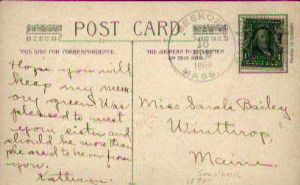 POST CARD.
THIS SIDE FOR CORRESPONDENCE.
THE ADDRESS TO BE WRITTEN
ON THIS SIDE.
SEEKONK
10
MASS.
Hope you will
keep my mem
ory green. Was
pleased to meet
your sister and
should be more than
pleased to hear from
you.
Kathryn
Miss Sarah Bailey
Winthrop,
Maine.
Seekonk